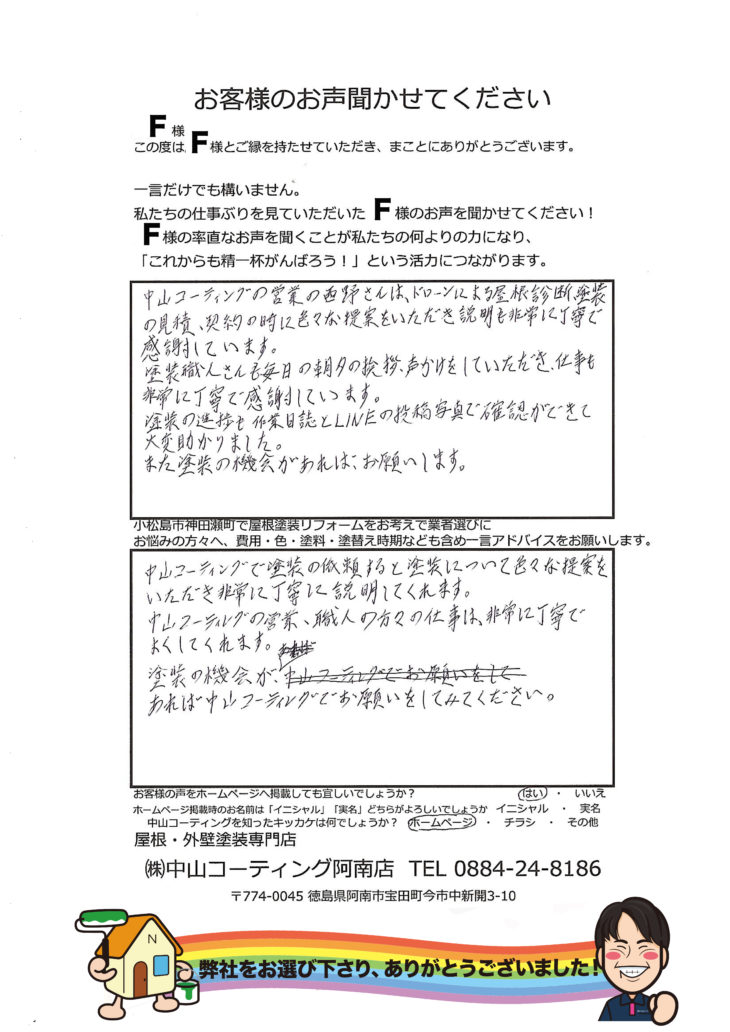 お客様のお声聞かせてください
F 様
この度は F 様とご縁を持たせていただき、まことにありがとうございます。
一言だけでも構いません。
私たちの仕事ぶりを見ていただいた F 様のお声を聞かせてください！
F様の率直なお声を聞くことが私たちの何よりの力になり、
「これからも精一杯がんばろう！」という活力につながります。
中山コーティングの営業の西野さんは、ドローンによる屋根診断、塗装
の見積、契約の時に色々な提案をいただき説明も非常に丁寧で
感謝しています。
塗装職人さんも毎日の朝夕の挨拶、声かけをしていただき、仕事も
非常に丁寧で感謝しています。
塗装の進捗も作業日誌とLINEの投稿写真で確認ができて
大変助かりました。
また塗装の機会があれば、お願いします。
小松島市神田瀬町で屋根塗装リフォームをお考えで業者選びに
お悩みの方々へ、費用・色・塗料・塗替え時期なども含め一言アドバイスをお願いします。
中山コーティングで塗装の依頼すると塗装について色々な提案を
いただき非常に丁寧に説明してくれます。
中山コーティングの営業、職人の方々の仕事は、非常に丁寧で
よくしてくれます。
塗装の機会が、中山コーティングでお願いをして
あれば中山コーティングでお願いをしてみてください。
お客様の声をホームページへ掲載しても宜しいでしょうか？ はい ・ いいえ
ホームページ掲載時のお名前は「イニシャル」「実名」どちらがよろしいでしょうか イニシャル ・ 実名
中山コーティングを知ったキッカケは何でしょうか？ ホームページ ・ チラシ ・ その他
屋根・外壁塗装専門店
㈱中山コーティング阿南店 TEL 0884-24-8186
〒774-0045 徳島県阿南市宝田町今市中新開3-10
N
弊社をお選び下さり、ありがとうございました！